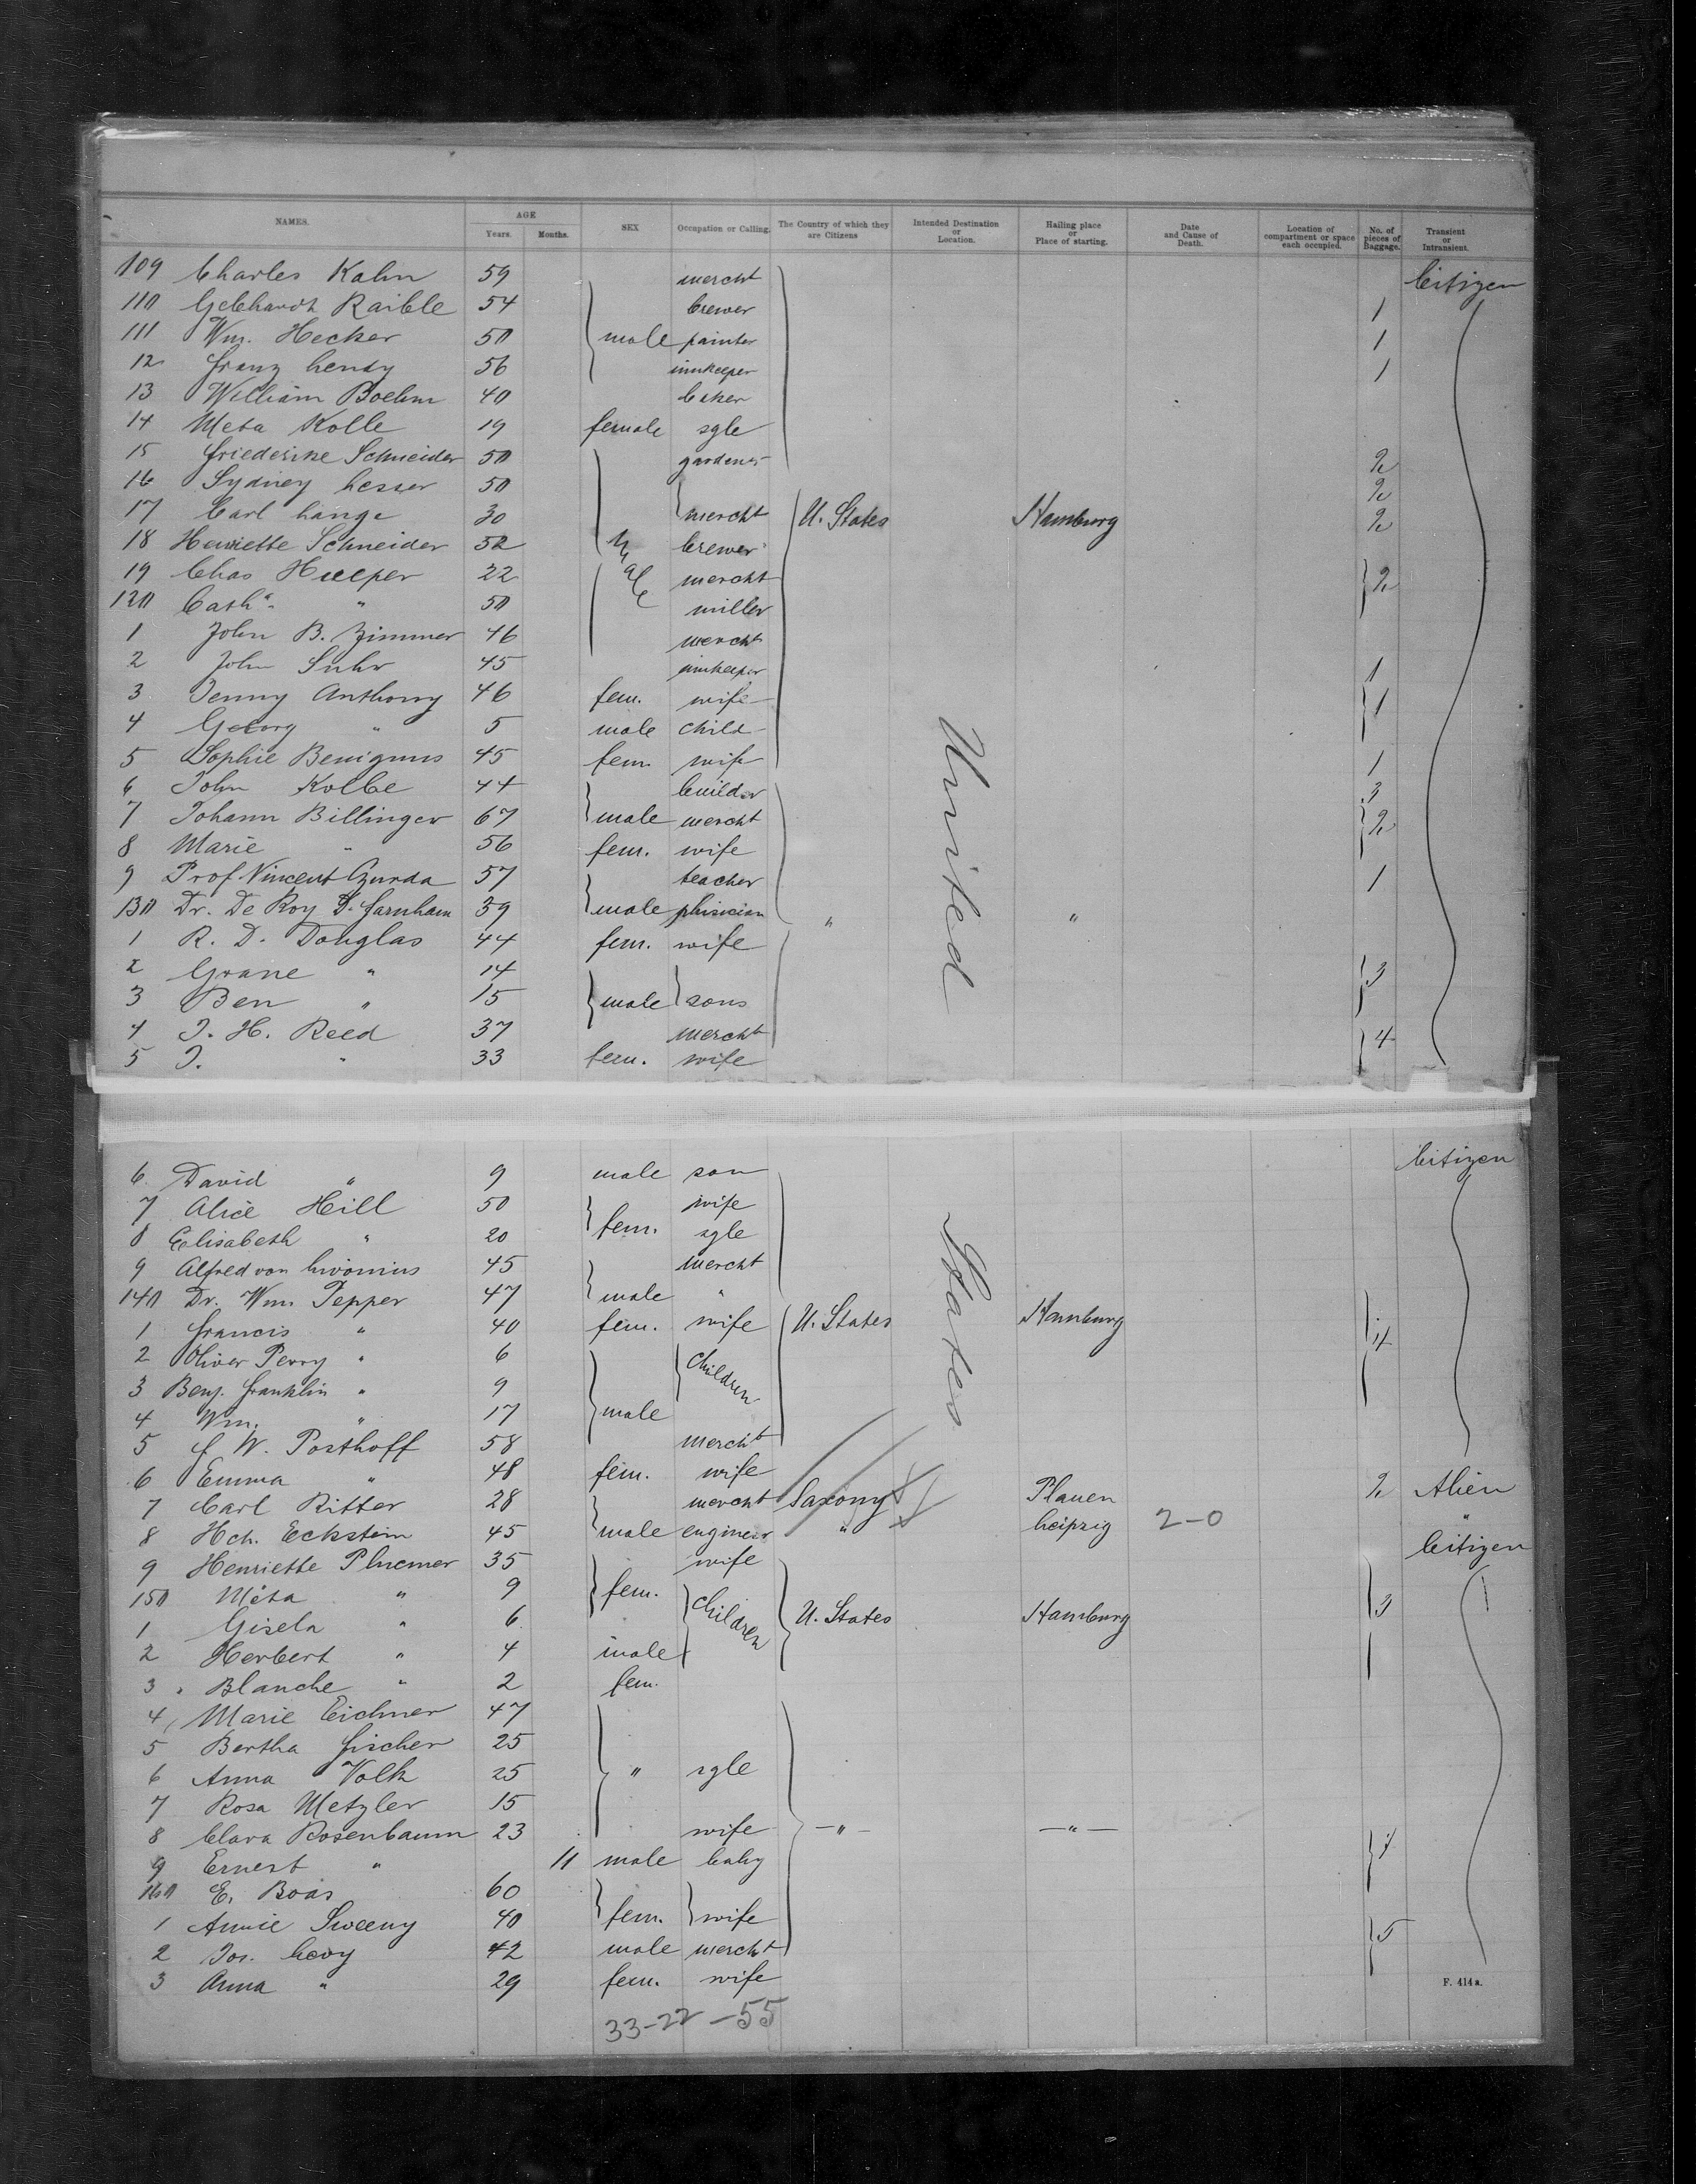 NAMES. AGE Years. Months. SEX Occupation or Calling. The Country of which they are Citizens Intended Destination or Location. Hailing place or Place of starting. Date and Cause of Death. Location of compartment or space each occupied. No. of pieces of Baggage. Transient or Intransient.
109 Charles Kahn 59 mercht Citizen
110 Gebhardt Raible 54 brewer 1
111 Wm. Hecker 50 male painter 1
12 Franz Lendy 56 innkeeper 1
13 William Boehm 40 baker
14 Meta Kolle 19 female sgle
15 Friederike Schneider 50 gardener 2
16 Sydney Lesser 50 2
17 Carl Lange 30 mercht U. States Hamburg 2
18 Henriette Schneider 52 male brewer
19 Chas Huelper 22 mercht 2
120 Cath. " 50 miller
1 John B. Zimmer 46 mercht
2 John Suhr 45 innkeeper 1
3 Jenny Anthony 46 fem. wife 1
4 Georg " 5 male child
5 Sophie Benignus 45 fem. wife 1
6 John Kolbe 44 builder 3
7 Johann Billinger 67 male mercht 2
8 Marie " 56 fem. wife
9 Prof. Vincent Czurda 57 teacher 1
130 Dr. De Roy D. Farnham 39 male phisician " "
1 R. D. Douglas 44 fem. wife
2 Grane " 14 3
3 Ben " 15 male sons
4 J. H. Reed 37 mercht 4
5 J. " 33 fem. wife
United
6 David " 9 male son Citizen
7 Alice Hill 50 wife
8 Elisabeth " 20 fem. sgle
9 Alfred von Livonius 45 mercht
140 Dr. Wm. Pepper 47 male "
1 Francis " 40 fem. wife U. States Hamburg
2 Oliver Perry " 6 children 14
3 Benj. Franklin " 9
4 Wm. " 17 male
5 J. W. Posthoff 58 mercht
6 Emma " 48 fem. wife
States
7 Carl Ritter 28 mercht Saxony Plauen 2 Alien
8 Hch. Eckstein 45 male engineer " Leipzig 2-0 "
9 Henriette Pluemer 35 wife Citizen
150 Meta " 9 fem. 3
1 Gisela " 6 children U. States Hamburg
2 Herbert " 4 male
3 Blanche " 2 fem.
4 Marie Eichner 47
5 Bertha Fischer 25
6 Anna Volk 25 " sgle
7 Rosa Metzler 15
8 Clara Rosenbaum 23 wife — " — — " —
9 Ernest " 11 male baby
160 E. Boas 60
1 Annie Sweeny 40 fem. wife
2 Jos. Levy 42 male mercht 5
3 Anna " 29 fem. wife
F. 414a.
33-22-55